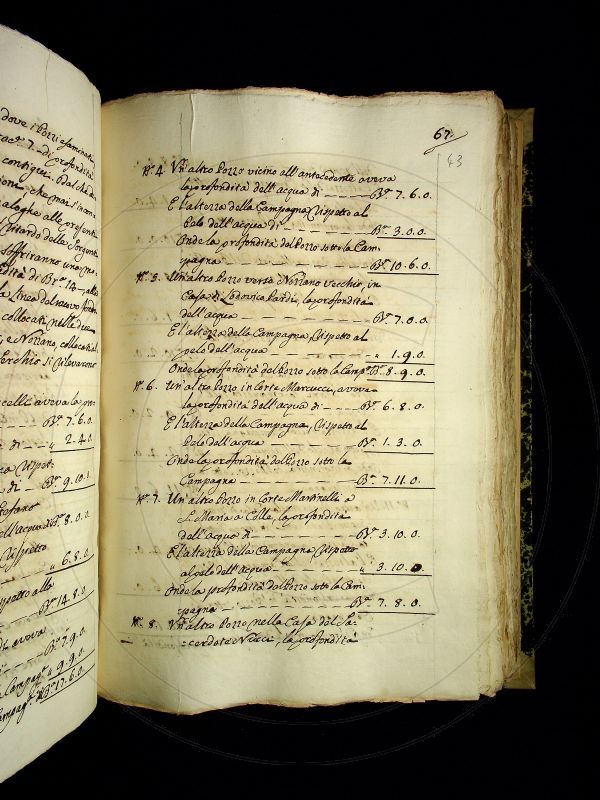 dove i Pozzi esaminati
7. di profondità
contigui. Dal
che mai si
aloghe alle presenti
Ritardo delle Sorgenti
soffriranno una
dità di Br.ª 14
la linea del nuovo
collocati nelle
e Nozzano, collocati al
Serchio si rilevarono
celli aveva la pro-
Br.ª 7. 6. 0.
di „ 2. 4. 0.
Rispet-
di Br.ª 9. 10. 1
Stefano
dell'acqua di Br.ª 8. 0. 0.
Rispetto
„ 6. 8. 0.
spetto alla
Br.ª 14. 8. 0.
di aveva
Br.ª 7. 9. 0.
la Campag.ª „ 9. 9. 0.
Campag.ª Br.ª 17. 6. 0.
67.
43
N.º 4. Un altro Pozzo vicino all'antecedente aveva
la profondità dell'acqua di Br.ª 7. 6. 0.
E l'altezza della Campagna Rispetto al
Pelo dell'acqua di Br.ª 3. 0. 0.
Onde la profondità del Pozzo sotto la Cam-
pagna Br.ª 10. 6. 0.
N.º 5. Un altro Pozzo verso Nozzano Vecchio, in
Casa di Lodovico Pardi, la profondità
dell'acqua Br.ª 7. 0. 0.
E l'altezza della Campagna, Rispetto al
pelo dell'acqua „ 1. 9. 0.
Onde la profondità del Pozzo sotto la Camp.ª Br.ª 8. 9. 0.
N.º 6. Un altro Pozzo in Corte Marcucci, aveva
la profondità dell'acqua di Br.ª 6. 8. 0.
E l'altezza della Campagna, Rispetto al
Pelo dell'acqua Br.ª 1. 3. 0.
Onde la profondità del Pozzo sotto la
Campagna Br.ª 7. 11. 0.
N.º 7. Un altro Pozzo in Corte Martinelli a
S. Maria a Colle, la profondità
dell'acqua di Br.ª 3. 10. 0.
E l'altezza della Campagna Rispetto
al pelo dell'Acqua „ 3. 10. 0
Onde la profondità del Pozzo sotto la Cam-
pagna Br.ª 7. 8. 0.
N.º 8. Un altro Pozzo nella Casa del Sa-
cerdote Nieri, la profondità